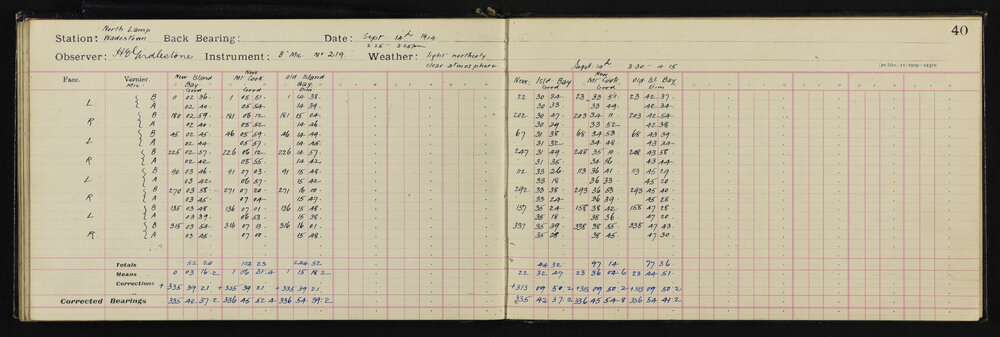 North Lamp
Station: Wadestown Back Bearing: Date: Sept 14th 1914 40
2.25 - 3.25pm
Observer: Instrument: 8" Mic No 219 Weather: light northerly
clear atmosphere Sept 14th 3.30 - 4.15
Face. Vernier. New Island Bay New Mt Cook Old Island Bay New Isld Bay New Mt Cook Old Isl Bay
Mic. Good Good Dim Good Good Dim
L B 0 02 36 1 05 51 1 14 38 22 30 34 23 33 59 23 42 37
A 02 40 05 54 14 39 30 33 33 49 42 34
R B 180 02 59 181 06 12 181 15 04 202 30 47 203 34 11 203 42 54
A 02 40 05 52 14 46 30 29 33 52 42 38
L B 45 02 45 46 05 59 46 14 49 67 31 38 68 34 53 68 43 39
A 02 44 05 57 14 45 31 32 34 48 43 34
R B 225 02 57 226 06 12 226 14 57 247 31 49 248 35 10 248 43 58
A 02 42 05 55 14 42 31 35 34 56 43 44
L B 90 03 46 91 07 03 91 15 48 112 33 26 113 36 41 113 45 29
A 03 42 06 57 15 42 33 18 36 33 45 20
R B 270 03 58 271 07 20 271 16 00 292 33 38 293 36 53 293 45 40
A 03 45 07 04 15 47 33 24 36 39 45 28
L B 135 03 48 136 07 01 136 15 48 157 35 24 158 38 42 158 47 28
A 03 39 06 53 15 38 35 18 38 36 47 20
R B 315 03 54 316 07 13 316 16 01 337 35 39 338 38 55 338 47 43
A 03 45 07 00 15 48 35 28 38 45 47 30
Totals 52 20 104 23 244 52 44 32 97 14 77 36
Means 0 03 16.2 1 06 31.4 1 15 18.2 22 32 47 23 36 04.6 23 44 51
Corrections + 335 39 21 + 335 39 21 + 335 39 21 + 313 09 50.2 + 313 09 50.2 + 313 09 50.2
Corrected Bearings 335 42 37.2 336 45 52.4 336 54 39.2 335 42 37.2 336 45 54.8 336 54 41.2